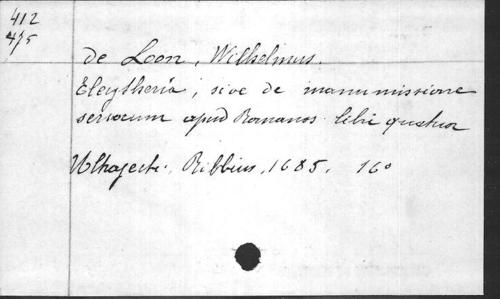 412
475
de Loon, Wilhelmus.
Eleytheria, sive de manumissione
servorum apud Romanos libri quatuor
Ultrajecti. Ribbius, 1685. 16o